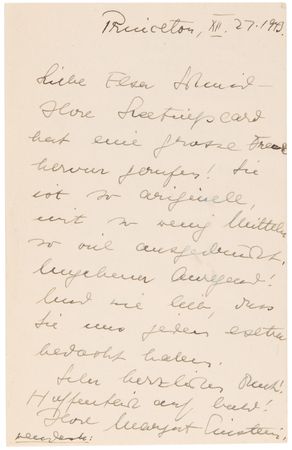 Princeton, XII. 27. 1943.
Liebe Elsa Schmid –
Ihre Greetingscard
hat eine grosse Freude
hervor gerufen! Sie
ist so originell,
mit so wenig Mitteln
so viel ausgedrückt,
Ungeheuer anregend!
Und wie lieb, dass
Sie uns jeden extra
bedacht haben.
Sehr herzlichen Dank!
Hoffentlich auf bald!
Ihre Margot Einstein.